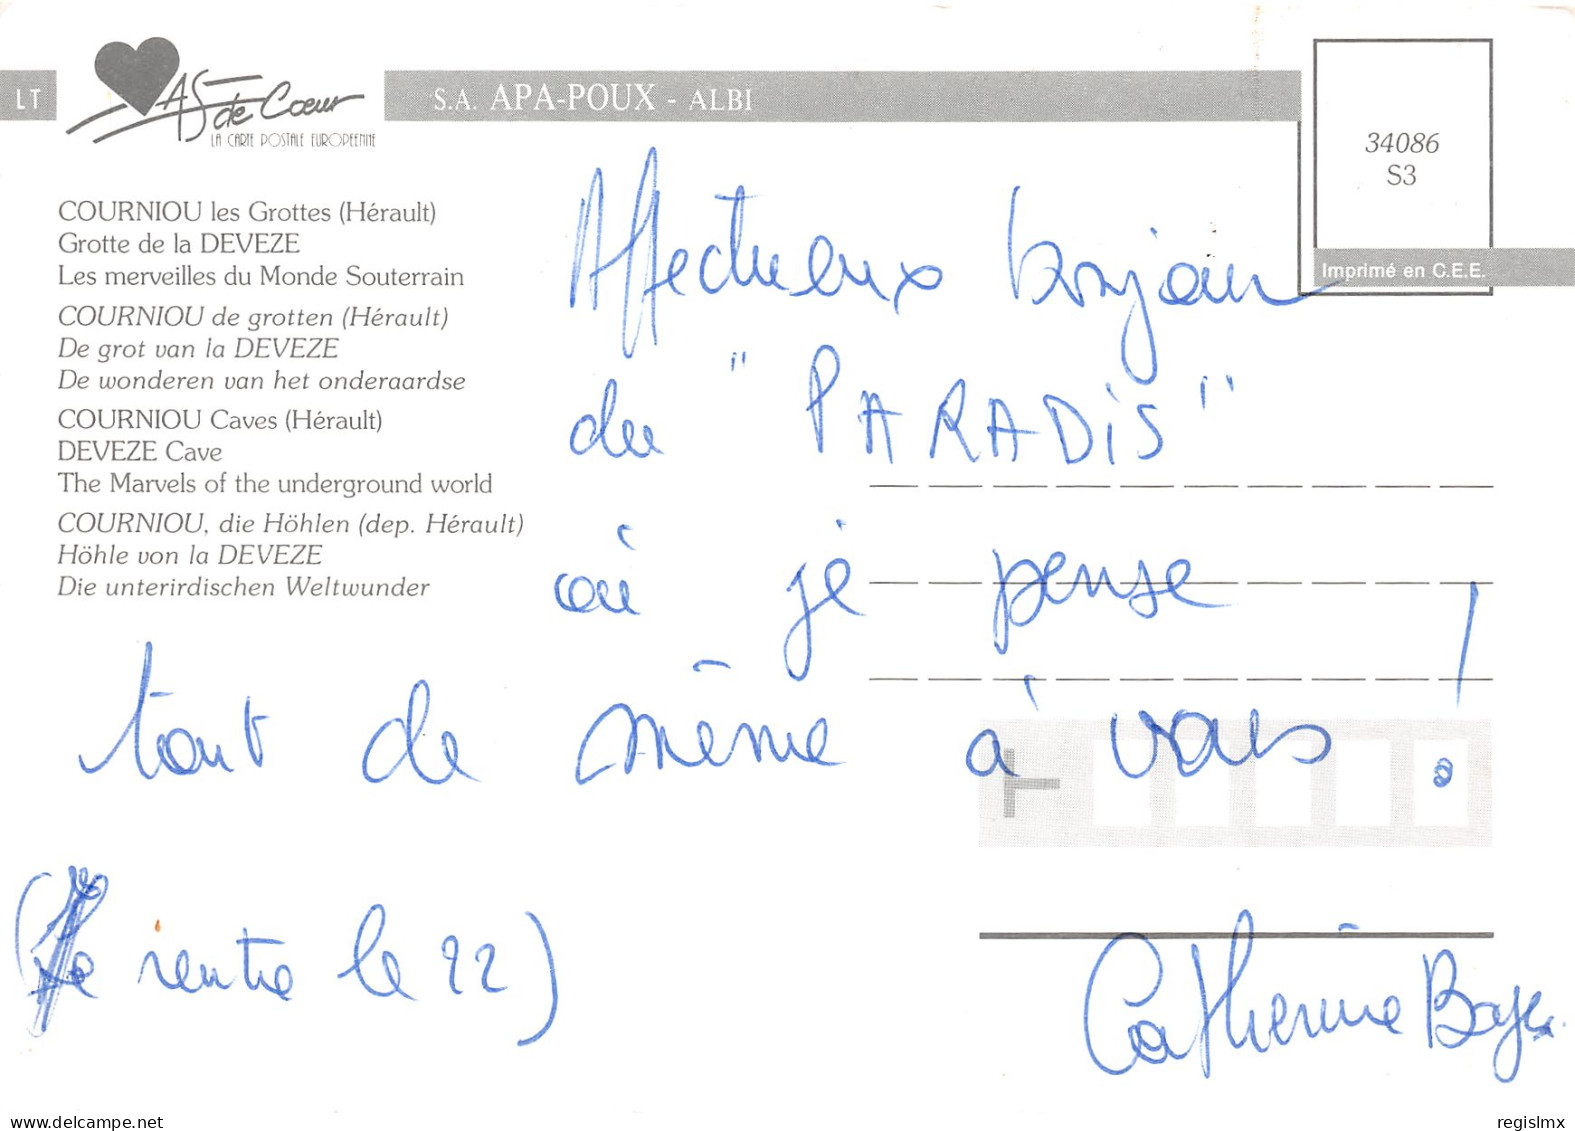 LT
As de Coeur
LA CARTE POSTALE EUROPEENNE
S.A. APA-POUX - ALBI
34086
S3
Imprimé en C.E.E.
COURNIOU les Grottes (Hérault)
Grotte de la DEVEZE
Les merveilles du Monde Souterrain
COURNIOU de grotten (Hérault)
De grot van la DEVEZE
De wonderen van het onderaardse
COURNIOU Caves (Hérault)
DEVEZE Cave
The Marvels of the underground world
COURNIOU, die Höhlen (dep. Hérault)
Höhle von la DEVEZE
Die unterirdischen Weltwunder
Affectueux bonjour
du "PARADiS"
où je pense
tout de même à vous !
(Je rentre le 22)
Catherine
delcampe.net
regislmx